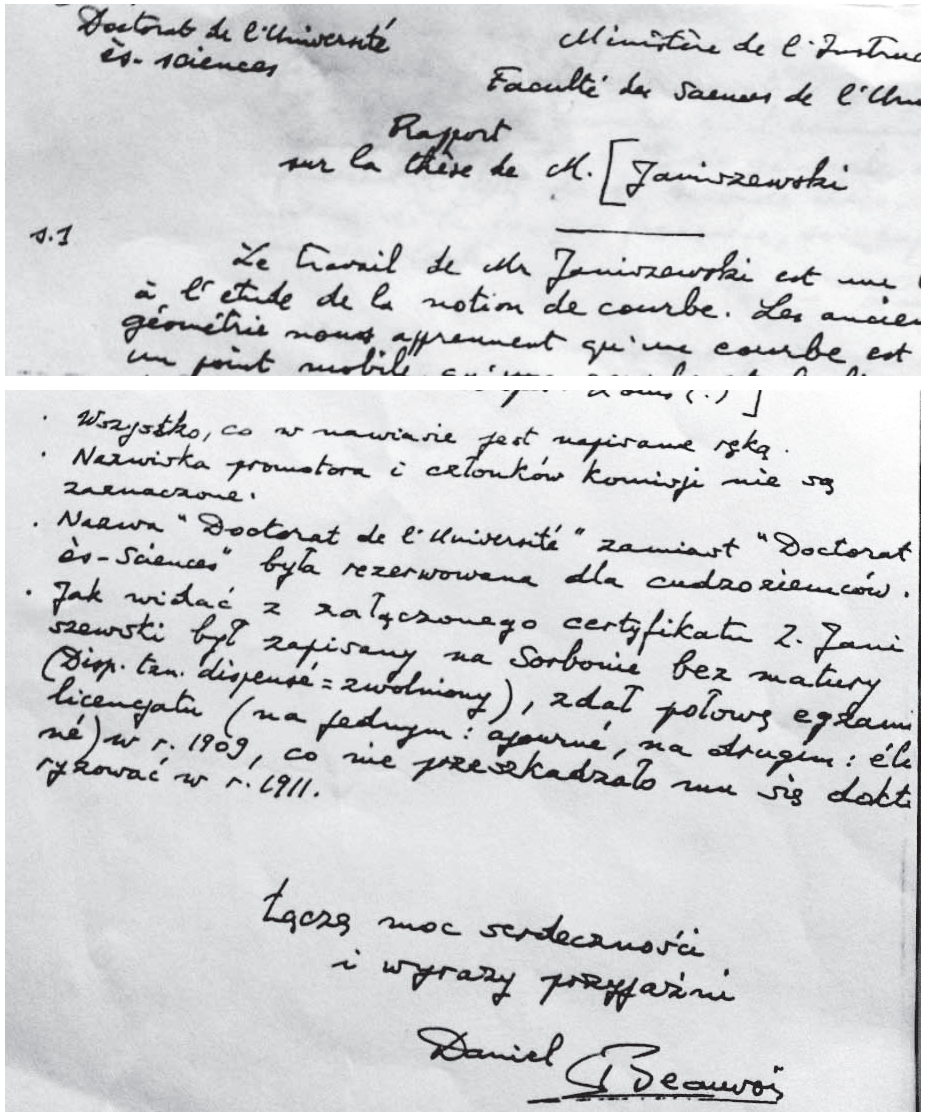 Doctorat de l'Université
ès-sciences
Ministère de l'Instruc
Faculté des Sciences de l'Uni
Rapport
sur la thèse de M. [Janiszewski
s.1
Le travail de Mr Janiszewski est une
à l'étude de la notion de courbe. Les ancien
géométrie nous apprennent qu'une courbe est
un point mobile, qu'une
(.)]
· Wszystko, co w nawiasie jest napisane ręką.
· Nazwiska promotora i członków komisji nie są
zaznaczone.
· Nazwa "Doctorat de l'Université" zamiast "Doctorat
ès-Sciences" była rezerwowana dla cudzoziemców.
· Jak widać z załączonego certyfikatu Z. Jani
szewski był zapisany na Sorbonie bez matury
(Disp. tzn. dispensé = zwolniony), zdał połowę egzami
licencjatu (na jednym: ajourné, na drugim: éli
né) w r. 1909, co nie przeszkadzało mu się dokto
ryzować w r. 1911.
Łączę moc serdeczności
i wyrazy przyjaźni
Daniel Beauvois